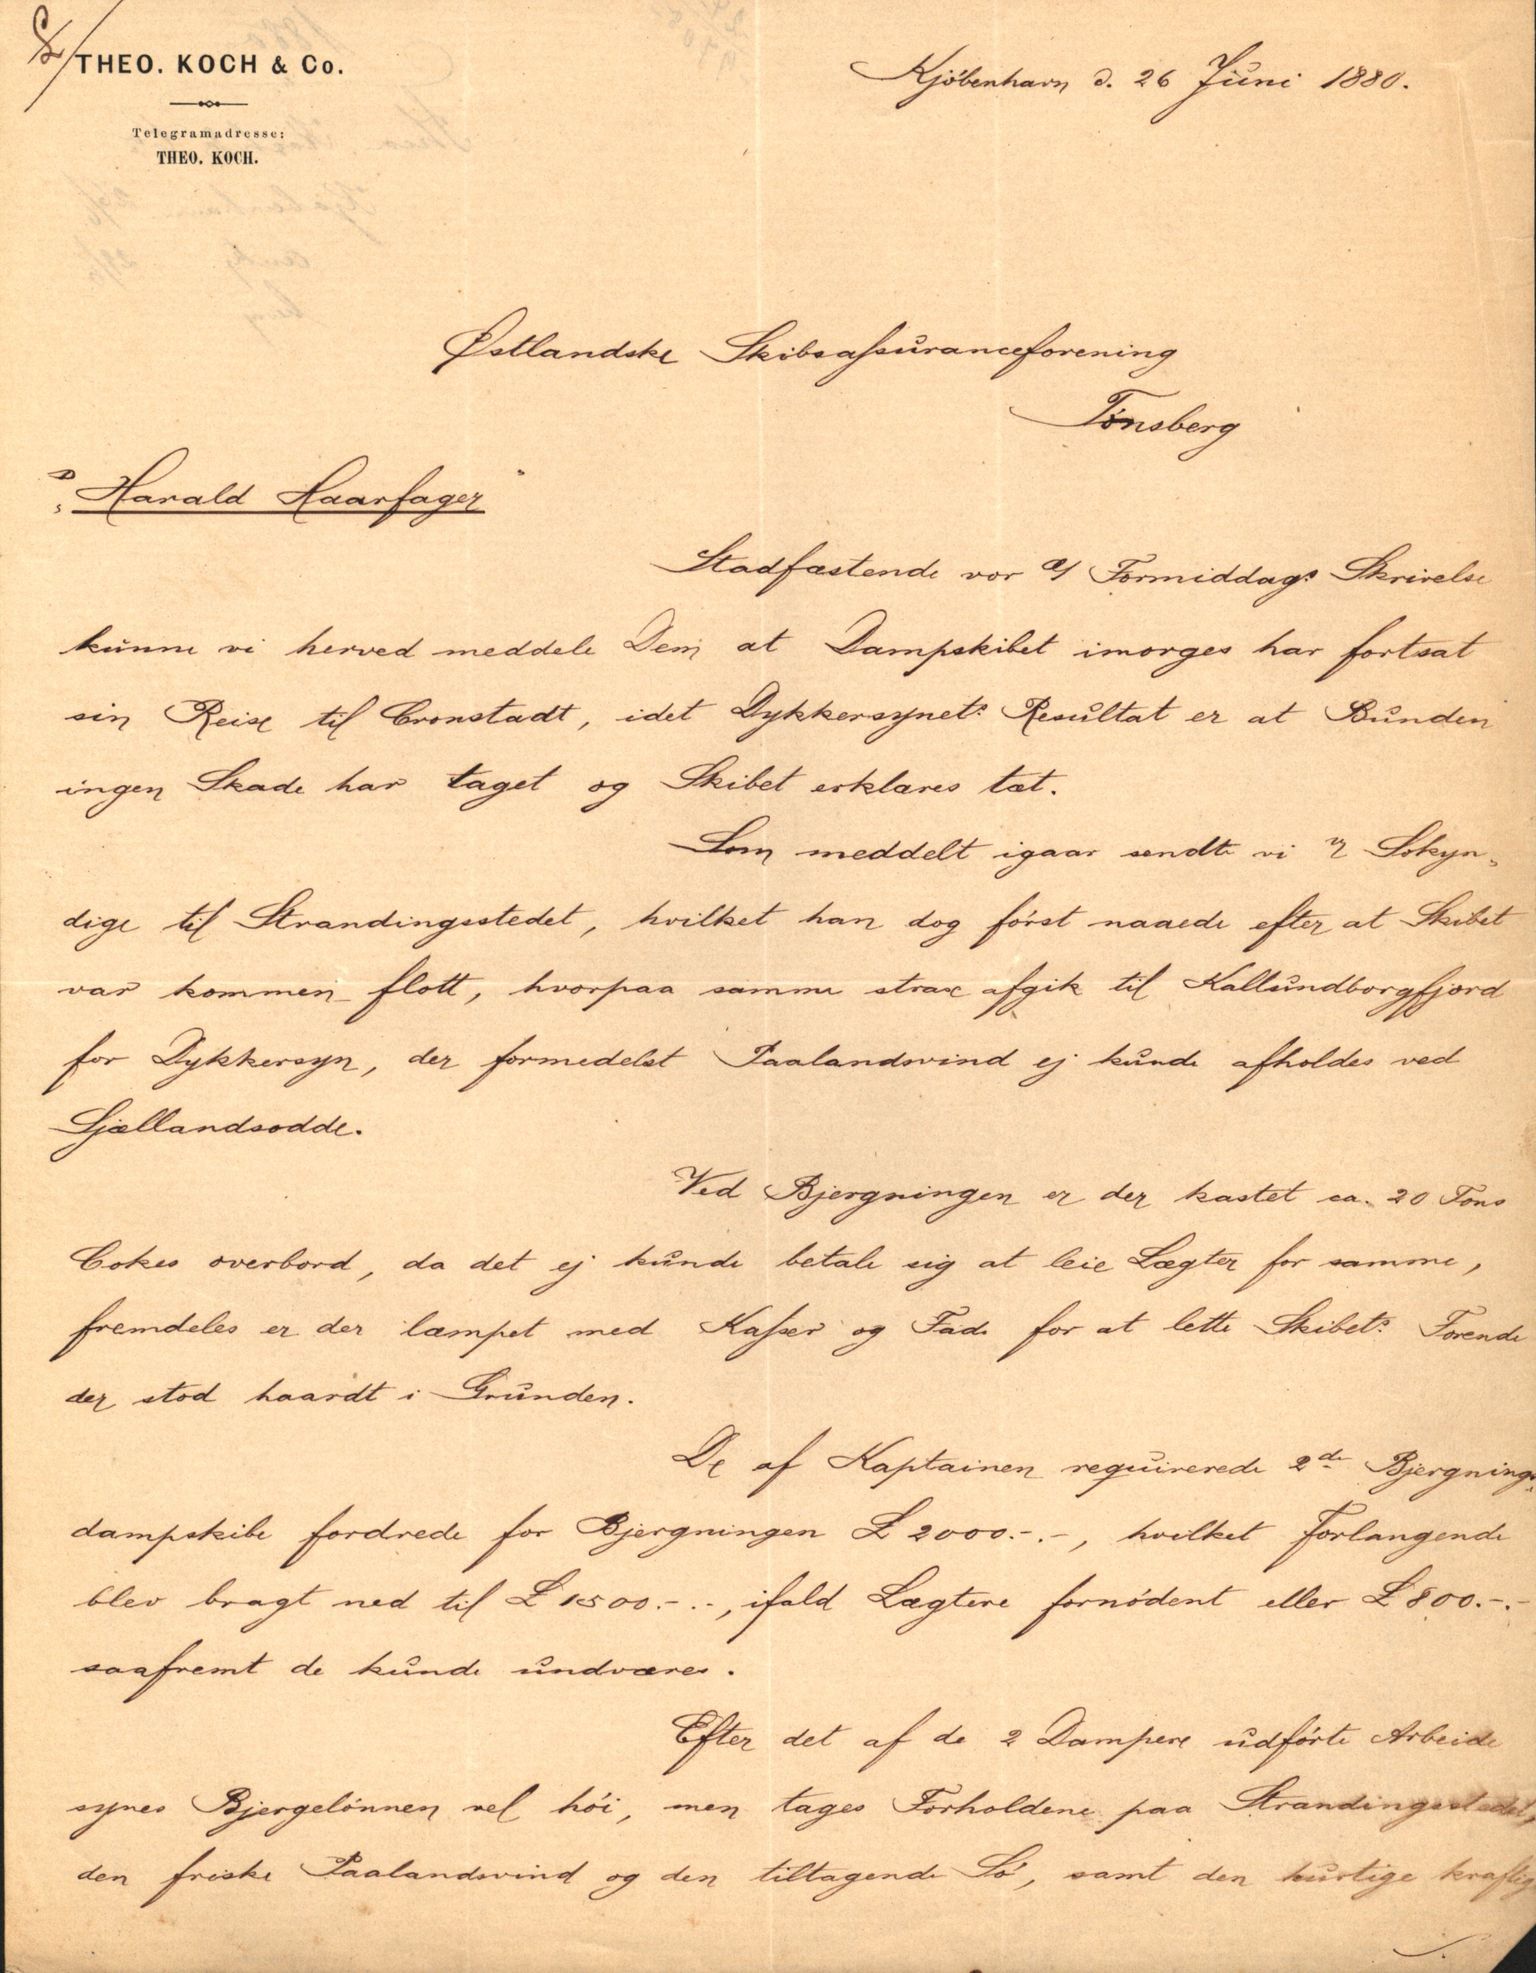 THEO. KOCH & Co.
Telegramadresse:
THEO. KOCH.
Kjöbenhavn d. 26 Juni 1880.
Østlandske Skibsassuranceforening
Tønsberg
„Harald Haarfager"
Stadfæstende vor Formiddags Skrivelse
kunne vi herved meddele Dem at Dampskibet imorges har fortsat
sin Reise til Cronstadt, idet Dykkersynets Resultat er at Bunden
ingen Skade har taget og Skibet erklæres tæt.
Som meddelt igaar sendte vi Sökyn-
dige til Strandingsstedet, hvilket han dog först naaede efter at Skibet
var kommen flott, hvorpaa samme strax afgik til Kallundborgfjord
for Dykkersyn, der formedelst Paalandsvind ej kunde afholdes ved
Sjællandsodde.
Ved Bjergningen er der kastet ca. 20 Tons
Cokes overbord, da det ej kunde betale sig at leie Lægter for samme,
fremdeles er der læmpet med Kasser og Fade for at lette Skibets Forende
der stod haardt i Grunden.
De af Kaptainen requirerede 2de Bjergnings-
dampskibe fordrede for Bjergningen £ 2000.-.-, hvilket Forlangende
blev bragt ned til £ 1500.-.-, ifald Lægtere fornödent eller £ 800.-.-
saafremt de kunde undværes.
Efter det af de 2 Dampere udförte Arbeide
synes Bjergelönnen vel höi, men tages Forholdene paa Strandingsstedet,
den friske Paalandsvind og den tiltagende Sö, samt den hurtige kraftig